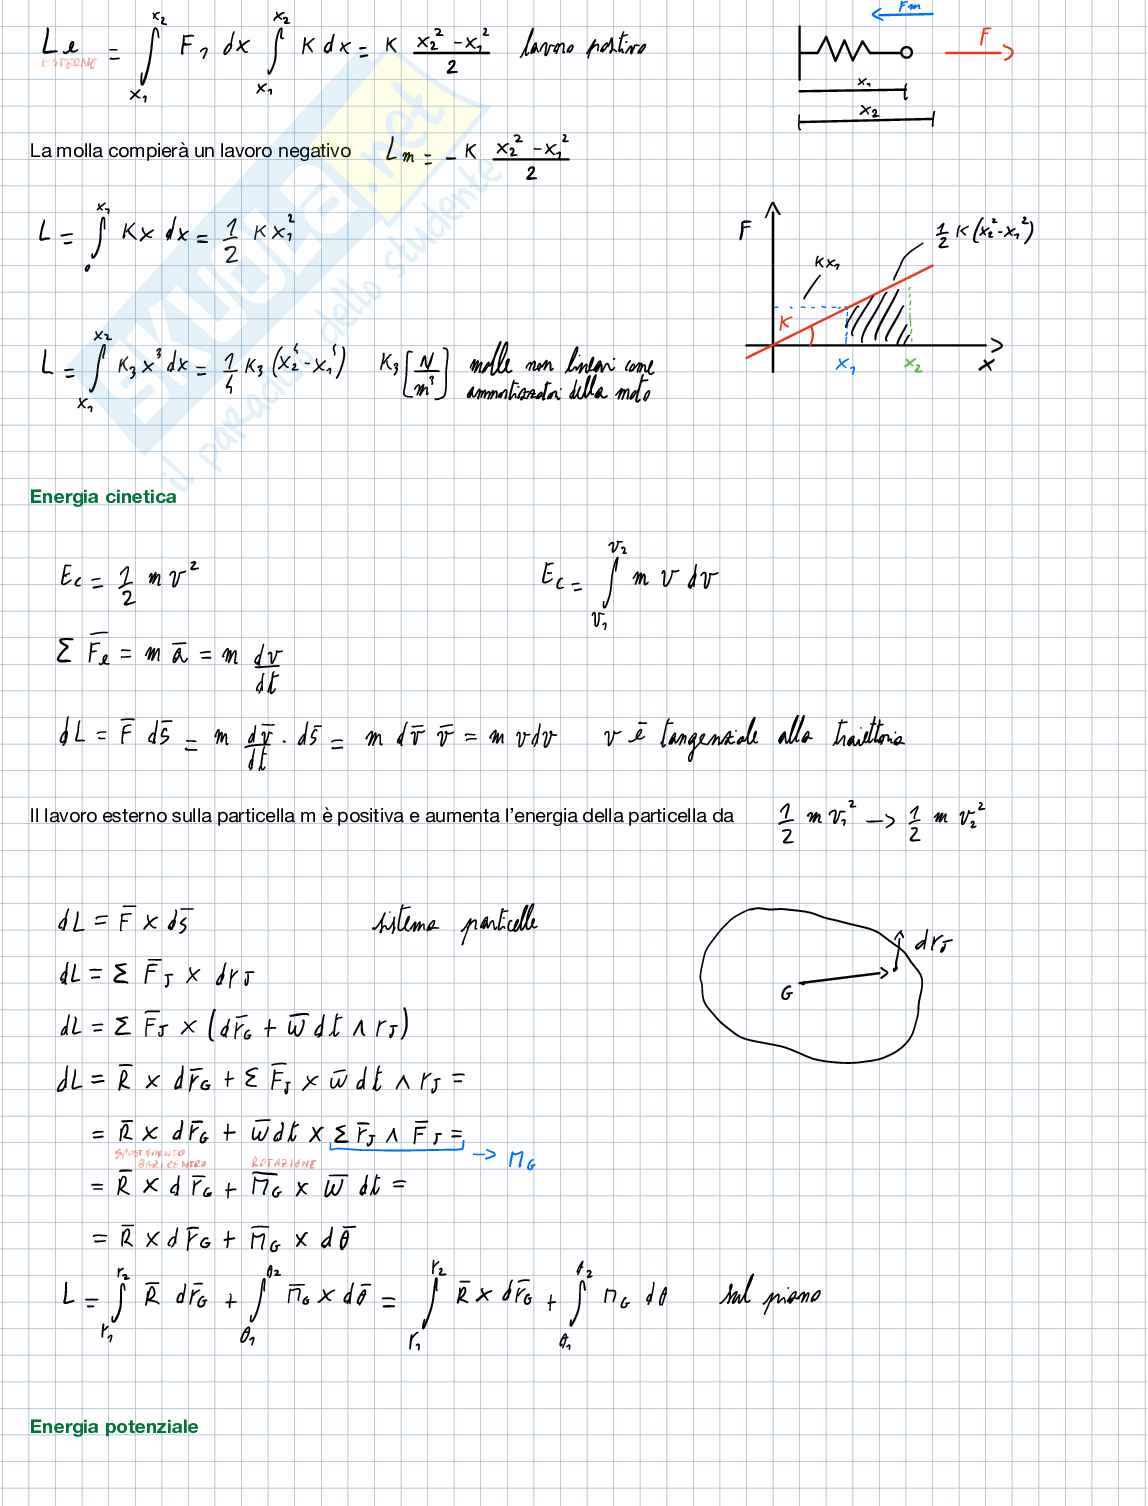 L_e = ∫_{x₁}^{x₂} F₁ dx ∫_{x₁}^{x₂} K dx = K (x₂² - x₁²)/2 lavoro positivo
ESTERNE
Fm
F
x₁
x₂
La molla compierà un lavoro negativo L_m = - K (x₂² - x₁²)/2
L = ∫_0^{x₁} Kx dx = 1/2 K x₁²
F
Kx₁
1/2 K (x₂² - x₁²)
K
x₁ x₂ x
L = ∫_{x₁}^{x₂} K₃ x³ dx = 1/4 K₃ (x₂⁴ - x₁⁴) K₃ [N/m³] molle non lineari come
ammortizzatori della moto
Energia cinetica
E_c = 1/2 m v² E_c = ∫_{v₁}^{v₂} m v dv
Σ F̄_e = m ā = m dv/dt
dL = F̄ ds̄ = m dv̄/dt · ds̄ = m dv̄ v̄ = m v dv v è tangenziale alla traiettoria
Il lavoro esterno sulla particella m è positiva e aumenta l'energia della particella da 1/2 m v₁² → 1/2 m v₂²
dL = F̄ × ds̄ sistema particelle
dL = Σ F̄_J × dr_J
dL = Σ F̄_J × (dr̄_G + w̄ dt ∧ r_J)
dL = R̄ × dr̄_G + Σ F̄_J × w̄ dt ∧ r_J =
= R̄ × dr̄_G + w̄ dt × Σ r̄_J ∧ F̄_J = → M_G
SPOSTAMENTO
BARICENTRO ROTAZIONE
= R̄ × dr̄_G + M̄_G × w̄ dt =
= R̄ × dr̄_G + M̄_G × dθ̄
L = ∫_{r₁}^{r₂} R̄ dr̄_G + ∫_{θ₁}^{θ₂} M̄_G × dθ̄ = ∫_{r₁}^{r₂} R̄ × dr̄_G + ∫_{θ₁}^{θ₂} M_G dθ sul piano
G
dr_J
Energia potenziale
SKUOLA.net
il paradiso dello studente